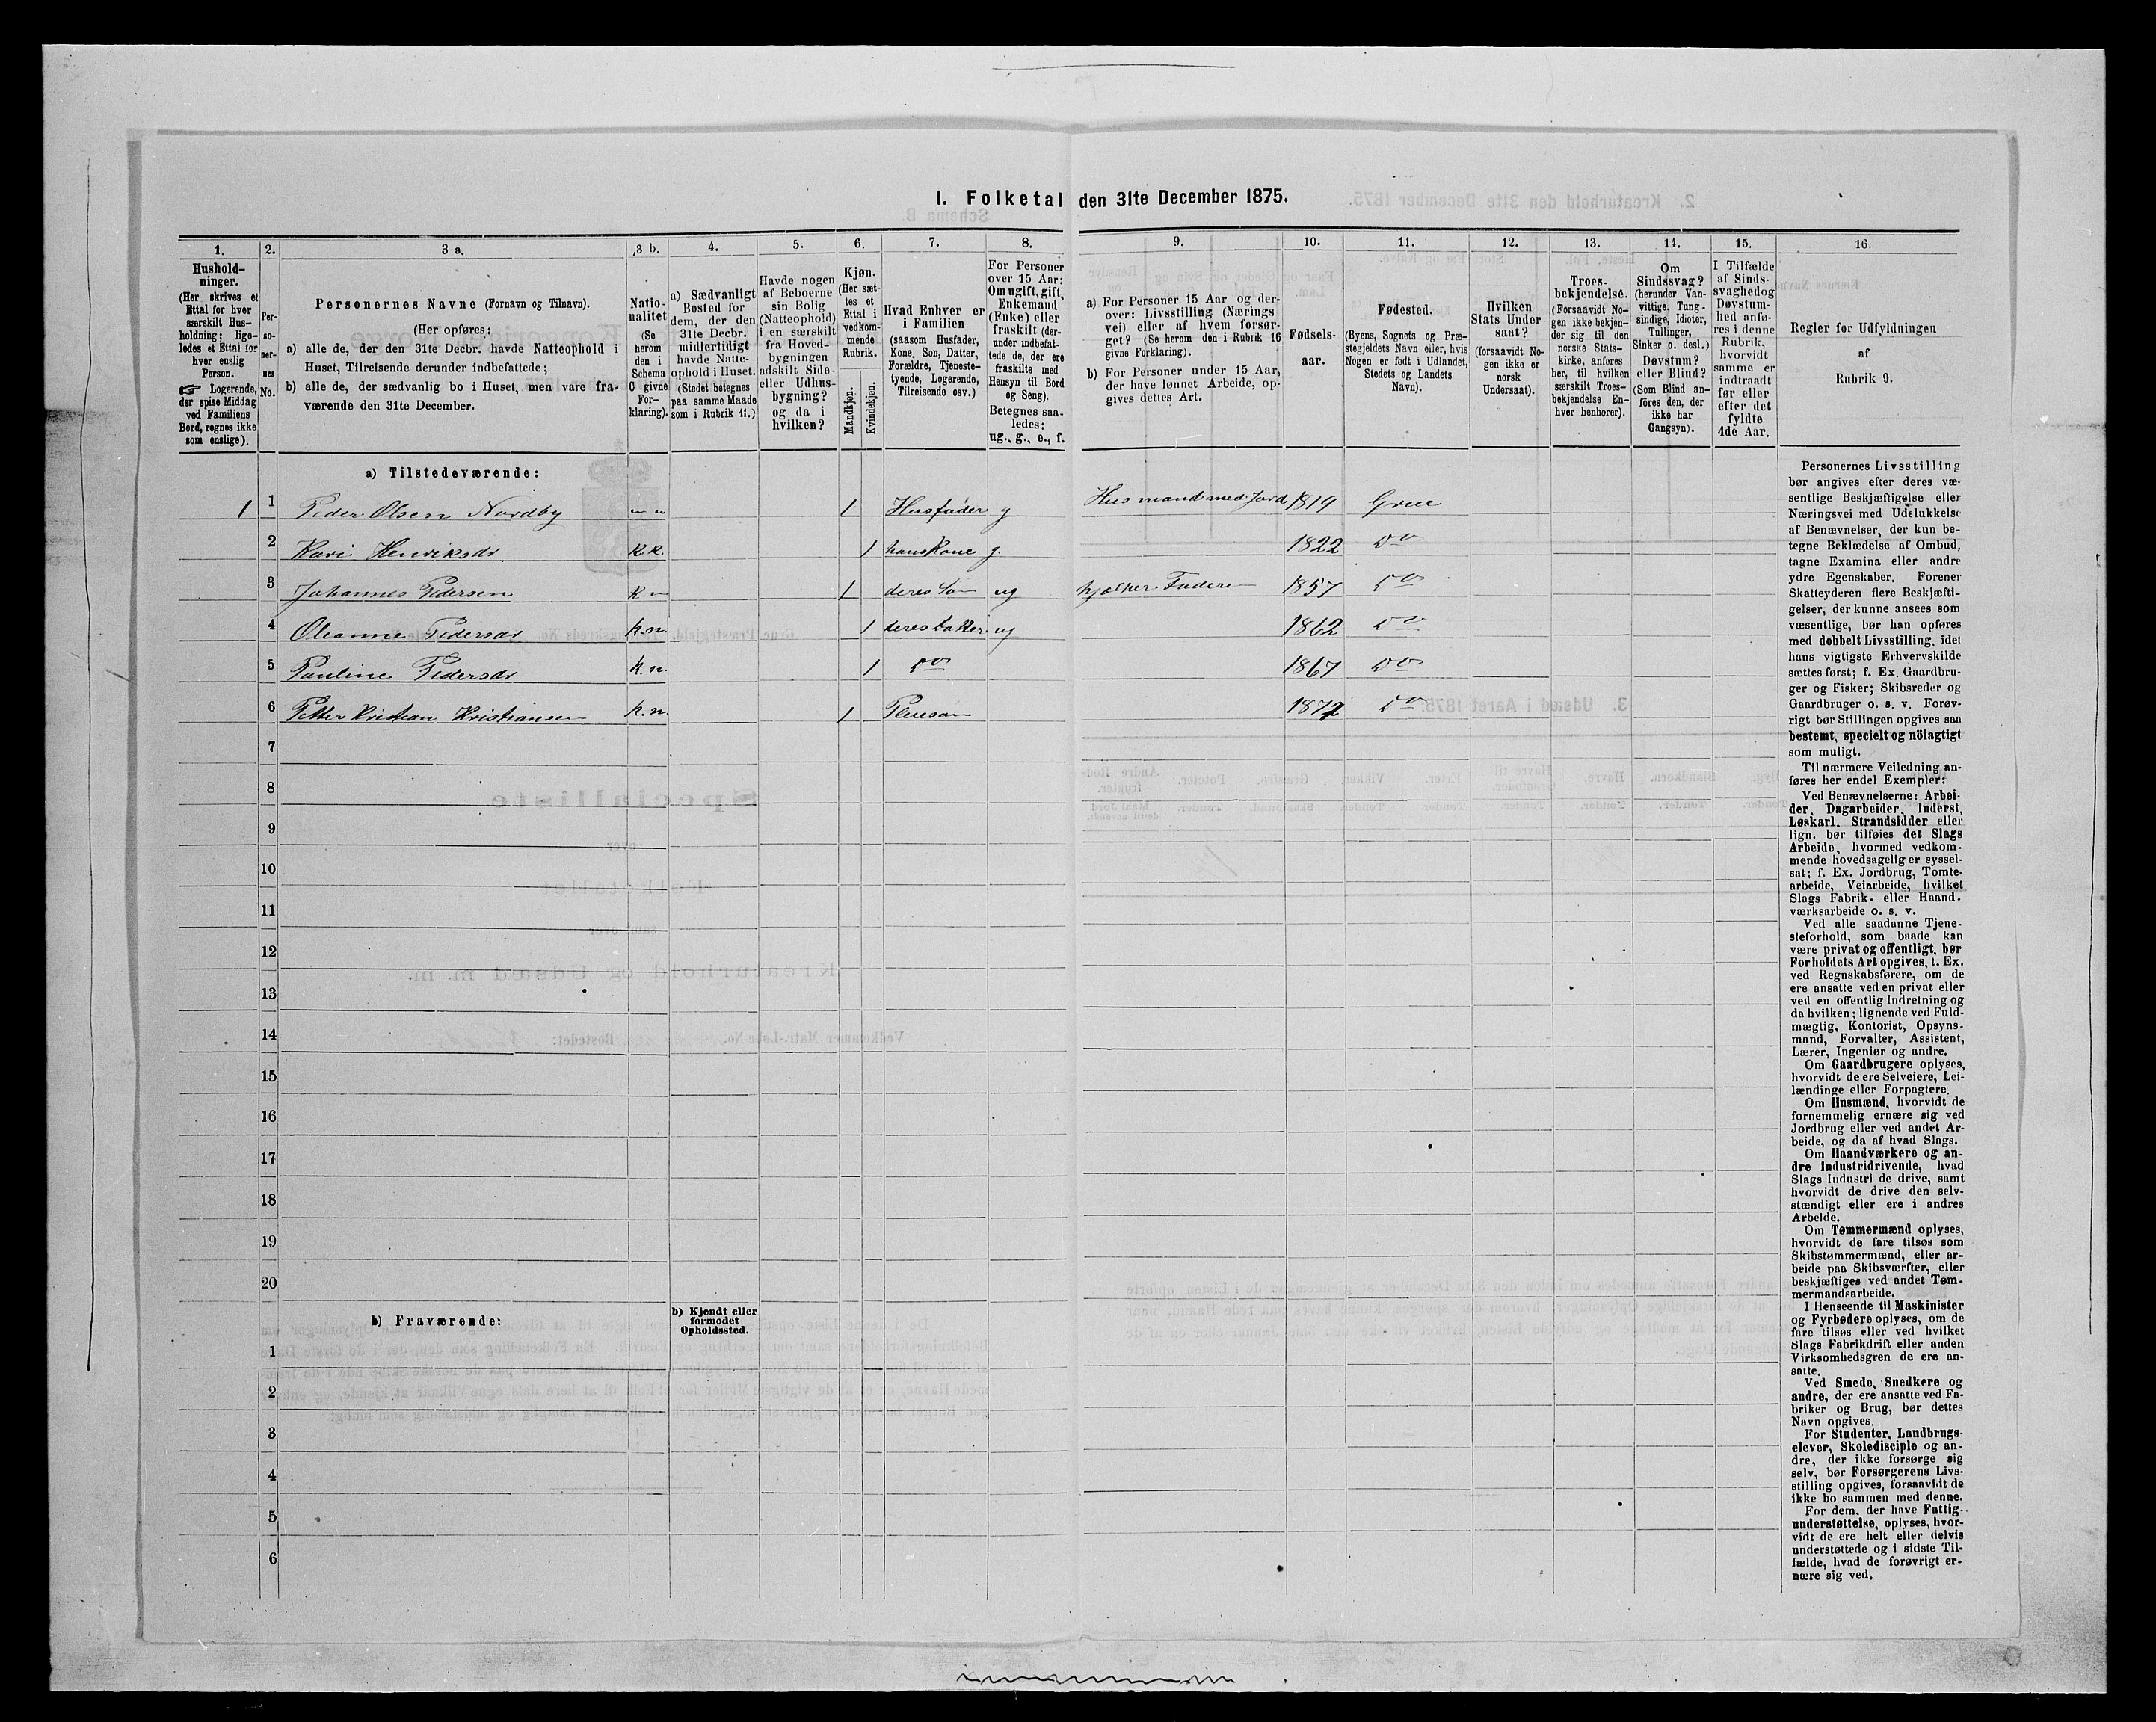 I. Folketal den 31te December 1875.
1. 2. 3 a. 3 b. 4. 5. 6. 7. 8. 9. 10. 11. 12. 13. 14. 15. 16.
Hushold-
ninger.
(Her skrives et
Ettal for hver
særskilt Hus-
holdning; lige-
ledes et Ettal for
hver enslig
Person.
☞ Logerende,
der spise Middag
ved Familiens
Bord, regnes ikke
som enslige).
Per-
so-
ner-
nes
No.
Personernes Navne (Fornavn og Tilnavn).
(Her opføres:
a) alle de, der den 31te Decbr. havde Natteophold i
Huset, Tilreisende derunder indbefattede;
b) alle de, der sædvanlig bo i Huset, men vare fra-
værende den 31te December.
Natio-
nalitet
(Se
herom
den i
Schema
O givne
For-
klaring).
a) Sædvanligt
Bosted for
dem, der den
31te Decbr.
midlertidigt
havde Natte-
ophold i Huset.
(Stedet betegnes
paa samme Maade
som i Rubrik 11.)
Havde nogen
af Beboerne
sin Bolig
(Natteophold)
i en særskilt
fra Hoved-
bygningen
adskilt Side-
eller Udhus-
bygning?
og da i
hvilken?
Kjøn.
(Her sæt-
tes et
Ettal i
vedkom-
mende
Rubrik.
Mandkjøn.
Kvindekjøn.
Hvad Enhver er
i Familien
(saasom Husfader,
Kone, Søn, Datter,
Forældre, Tjeneste-
tyende, Logerende,
Tilreisende osv.)
For Personer
over 15 Aar:
Om ugift, gift,
Enkemand
(Enke) eller
fraskilt (der-
under indbefat-
tede de, der ere
fraskilte med
Hensyn til Bord
og Seng).
Betegnes saa-
ledes:
ug., g., e., f.
a) For Personer 15 Aar og der-
over: Livsstilling (Nærings
vei) eller af hvem forsør-
get? (Se herom den i Rubrik 16
givne Forklaring).
b) For Personer under 15 Aar,
der have lønnet Arbeide, op-
gives dettes Art.
Fødsels-
aar.
Fødested.
(Byens, Sognets og Præ-
stegjeldets Navn eller, hvis
Nogen er født i Udlandet,
Stedets og Landets
Navn).
Hvilken
Stats Under
saat?
(forsaavidt No-
gen ikke er
norsk
Undersaat).
Troes-
bekjendelse.
(Forsaavidt No-
gen ikke bekjen-
der sig til den
norske Stats-
kirke, anføres
her, til hvilken
særskilt Troes-
bekjendelse En-
hver henhører).
Om
Sindssvag?
(herunder Van-
vittige, Tung-
sindige, Idioter,
Tullinger,
Sinker o. desl.)
Døvstum?
eller Blind?
(Som Blind an-
føres den, der
ikke har
Gangsyn).
I Tilfælde
af Sinds-
svaghed og
Døvstum-
hed anfø-
res i denne
Rubrik,
hvorvidt
samme er
indtraadt
før eller
efter det
fyldte
4de Aar.
Regler for Udfyldningen
af
Rubrik 9.
a) Tilstedeværende:
1 1 Peder Olsen Nordby 1 Husfader g Husmand med Jord 1819 Grue
2 Kari Henriksdr 1 hans Kone g. 1822 Do
3 Johannes Pedersen 1 deres Søn ug hjælper Faderen 1857 Do
4 Oleanne Pedersdr k.n. 1 deres Datter ug 1862 Do
5 Pauline Pedersdr k.n. 1 Do 1867 Do
6 Petter Kristian Kristiansen k.n. 1 Pleiesøn Do
7
8
9
10
11
12
13
14
15
16
17
18
19
20
b) Fraværende:
b) Kjendt eller
formodet
Opholdssted.
1
2
3
4
5
6
Personernes Livsstilling
bør angives efter deres væ-
sentlige Beskjæftigelse eller
Næringsvei med Udelukkelse
af Benævnelser, der kun be-
tegne Beklædelse af Ombud,
tagne Examina eller andre
ydre Egenskaber. Forener
Skatteyderen flere Beskjæfti-
gelser, der kunne ansees som
væsentlige, bør han opføres
med dobbelt Livsstilling, idet
hans vigtigste Erhvervskilde
sættes først; f. Ex. Gaardbru-
ger og Fisker; Skibsreder og
Gaardbruger o. s. v. Forøv-
rigt bør Stillingen opgives saa
bestemt, specielt og nöiagtigt
som muligt.
Til nærmere Veiledning an-
føres her endel Exempler:
Ved Benævnelserne: Arbei-
der, Dagarbeider, Inderst,
Løskarl, Strandsidder eller
lign. bør tilføies det Slags
Arbeide, hvormed vedkom-
mende hovedsagelig er syssel-
sat; f. Ex. Jordbrug, Tomte-
arbeide, Veiarbeide, hvilket
Slags Fabrik- eller Haand-
værksarbeide o. s. v.
Ved alle saadanne Tjene-
steforhold, som baade kan
være privat og offentligt, bør
Forholdets Art opgives, t. Ex.
ved Regnskabsførere, om de
ere ansatte ved en privat eller
ved en offentlig Indretning og
da hvilken; lignende ved Fuld-
mægtig, Kontorist, Opsyns-
mand, Forvalter, Assistent,
Lærer, Ingeniør og andre.
Om Gaardbrugere oplyses,
hvorvidt de ere Selveiere, Lei-
lændinge eller Forpagtere.
Om Husmænd, hvorvidt de
fornemmelig ernære sig ved
Jordbrug eller ved andet Ar-
beide, og da af hvad Slags.
Om Haandværkere og an-
dre Industridrivende, hvad
Slags Industri de drive, samt
hvorvidt de drive den selv-
stændigt eller ere i andres
Arbeide.
Om Tømmermænd oplyses,
hvorvidt de fare tilsøs som
Skibstømmermænd, eller ar-
beide paa Skibsværfter, eller
beskjæftiges ved andet Tøm-
mermandsarbeide.
I Henseende til Maskinister
og Fyrbødere oplyses, om de
fare tilsøs eller ved hvilket
Slags Fabrikdrift eller anden
Virksomhedsgren de ere an-
satte.
Ved Smede, Snedkere og
andre, der ere ansatte ved Fa-
briker og Brug, bør dettes
Navn opgives.
For Studenter, Landbrugs-
elever, Skoledisciple og an-
dre, der ikke forsørge sig
selv, bør Forsørgerens Livs-
stilling opgives, forsaavidt de
ikke bo sammen med denne.
For dem, der have Fattig-
understøttelse, oplyses, hvor-
vidt de ere helt eller delvis
understøttede og i sidste Til-
fælde, hvad de forøvrigt er-
nære sig ved.